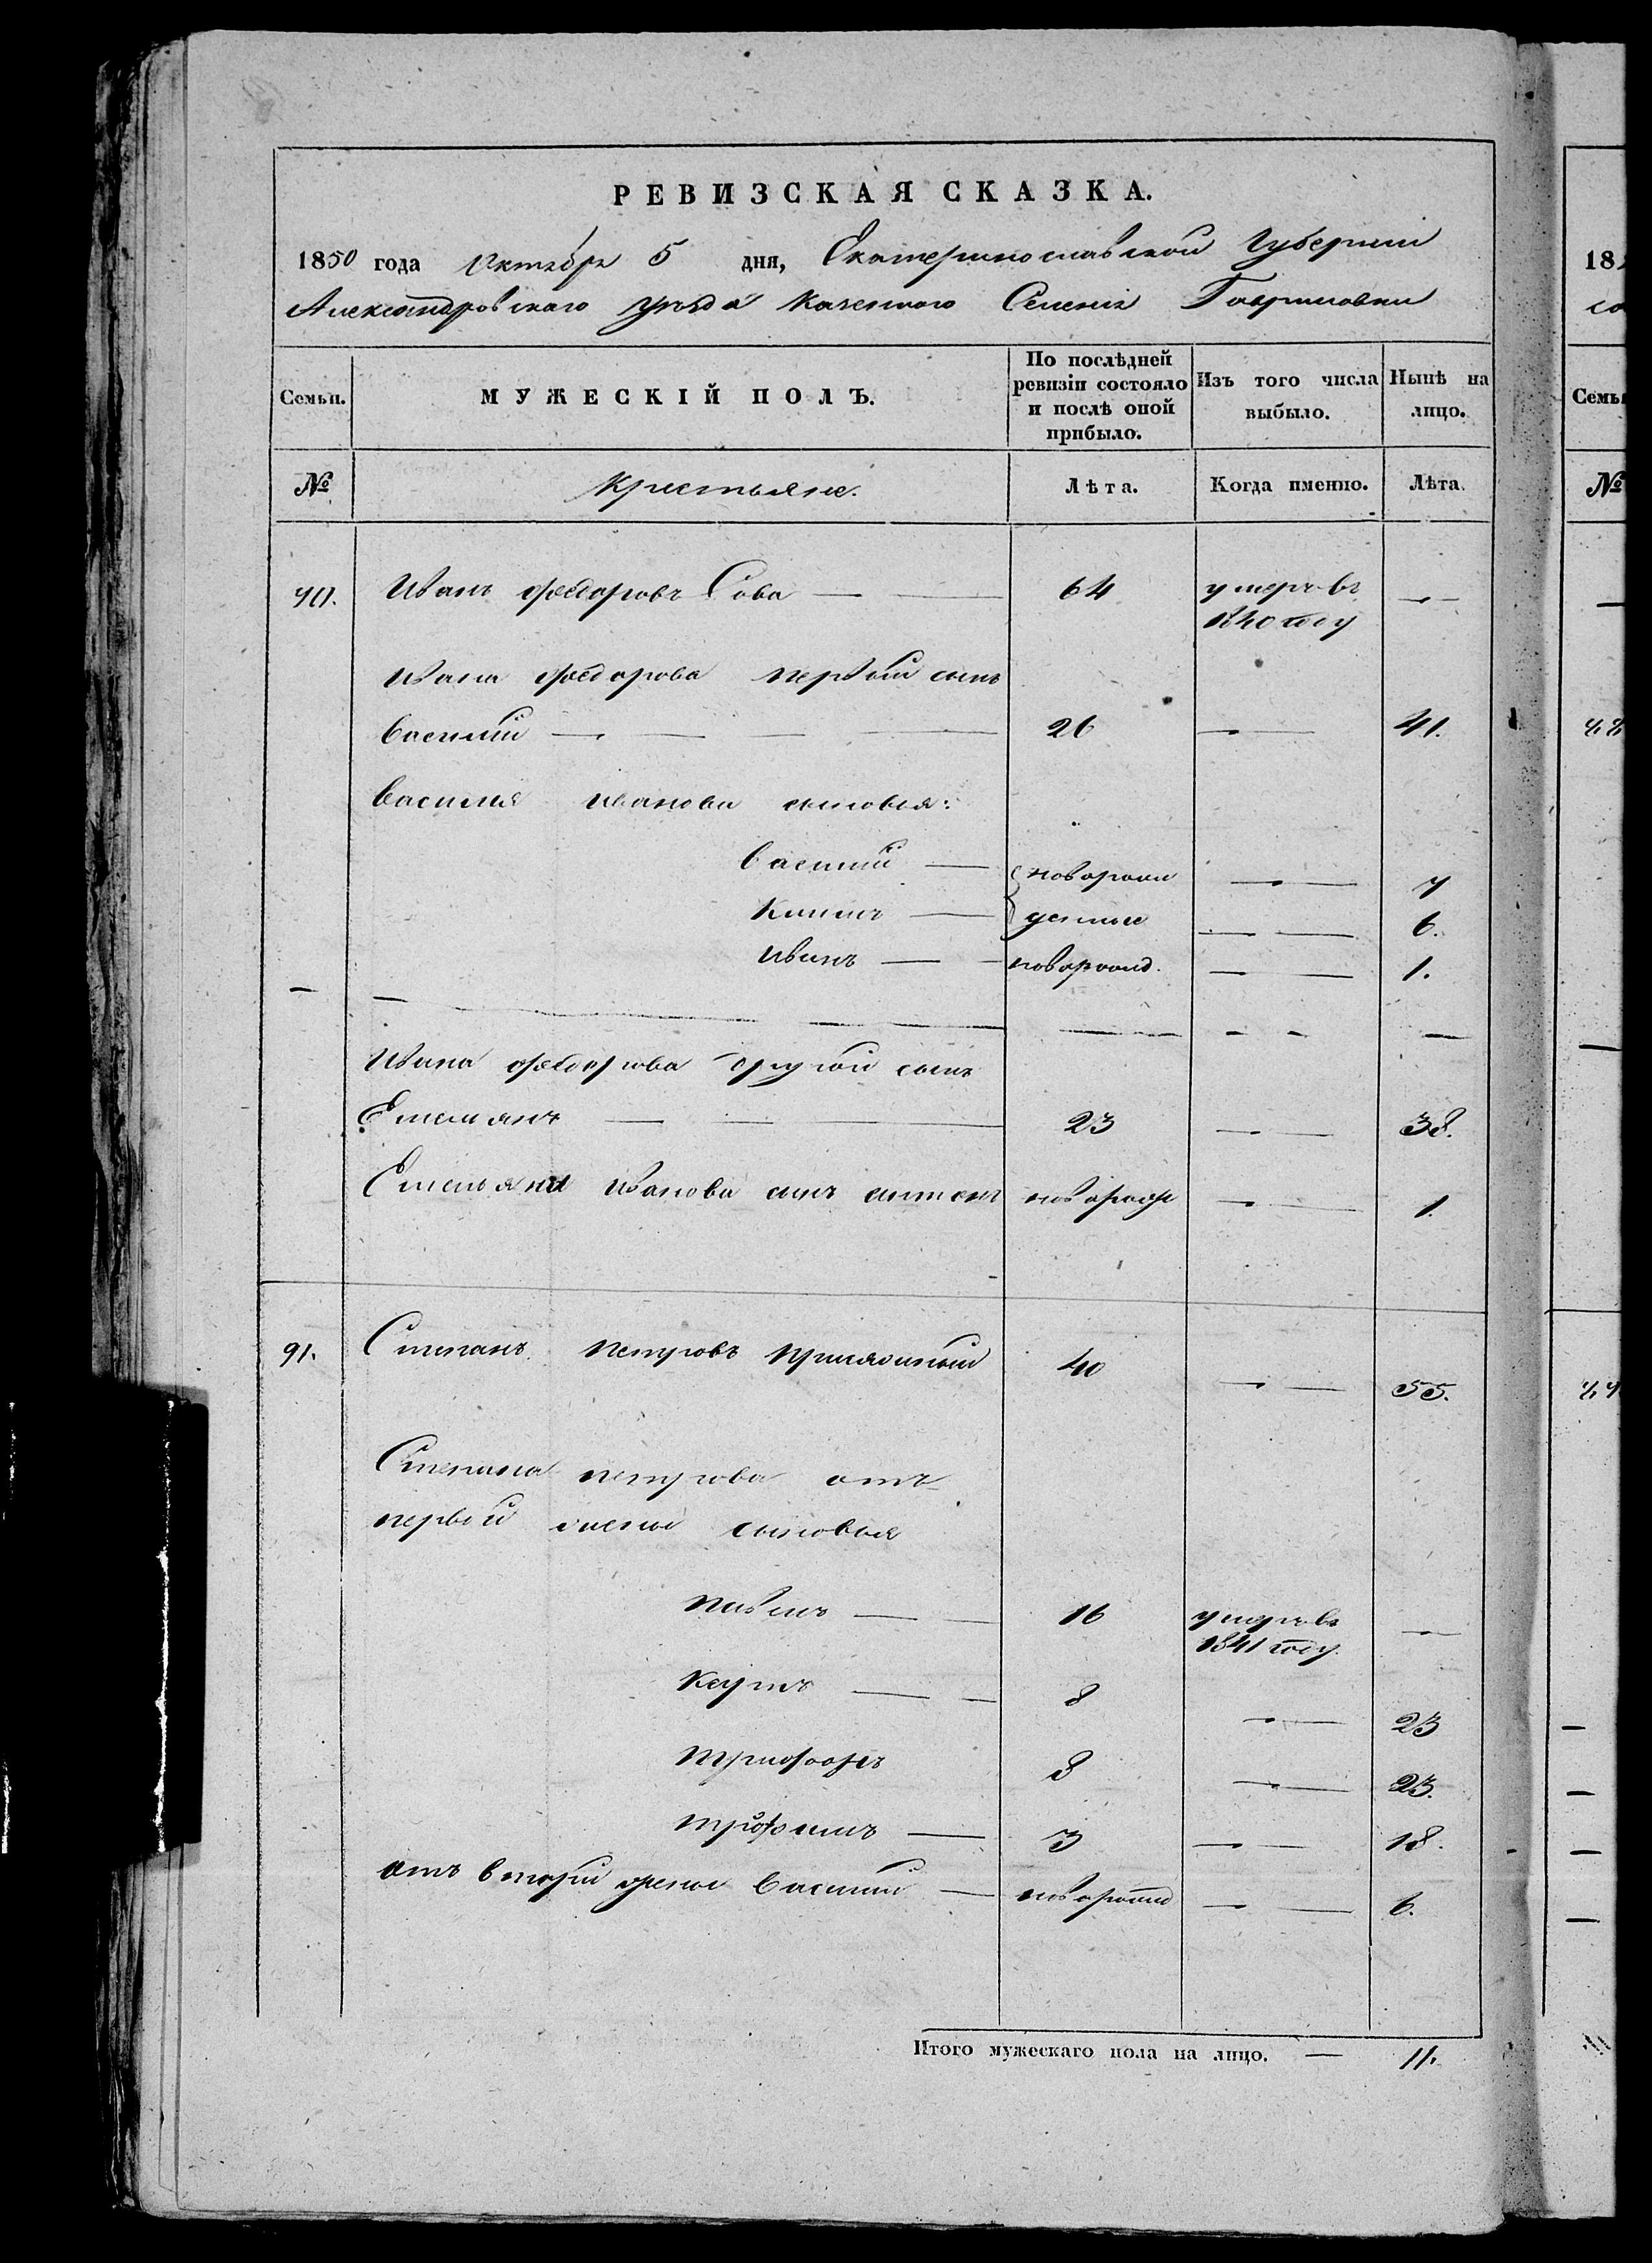 РЕВИЗСКАЯ СКАЗКА.
1850 года Октября 5 дня, Екатеринославской Губернии
Александровскаго уѣзда Казеннаго Селенія Гавриловки
Семьи. МУЖЕСКІЙ ПОЛЪ. По послѣдней ревизіи состояло и послѣ оной прибыло. Изъ того числа выбыло. Нынѣ на лицо.
№ Крестьяне. Лѣта. Когда именно. Лѣта.
90. Иванъ Федоровъ Сова — — 64 умеръ въ 1840 году —
Ивана Федорова первый сынъ
Василий — — — — 26 — — 41.
Василия Иванова сыновья:
Василий — новорожденные — — 7
Климъ — — — 6.
Иванъ — — новорожд. — — 1.
Ивана Федорова другой сынъ
Емельянъ — — — 23 — — 38.
Емельяна Иванова сынъ Антонъ новорожд — — 1.
91. Степанъ Петровъ 40 — — 55.
Степана Петрова отъ
первой жены сыновья
Павелъ — — 16 умеръ въ 1841 году. —
Карпъ — — 8 — — 23
Трифонъ 8 — — 23.
Трофимъ — 3 — — 18.
Отъ второй жены Василий — новорожд — — 6.
Итого мужескаго пола на лицо. — 11.
18
Семьи
№